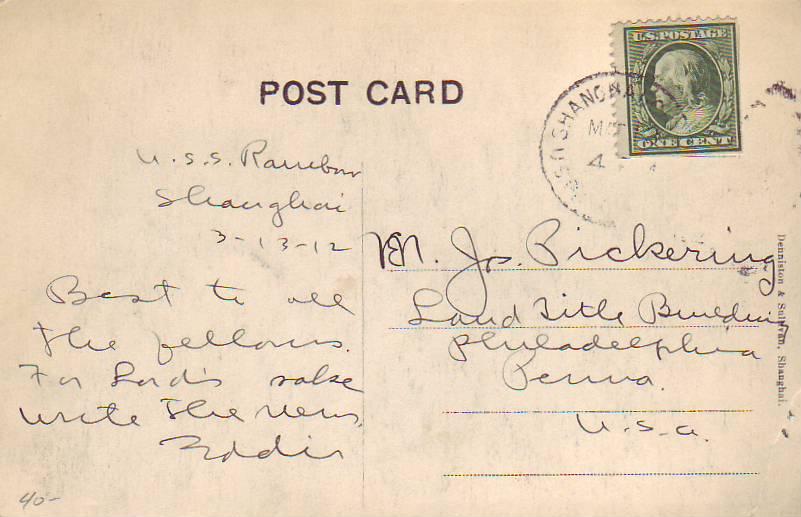 U.S. POSTAGE
ONE CENT
POST CARD
SHANGHAI
4
U.S.S. Rainbow
Shanghai
3-13-12
Best to all
the fellows.
For Lord's sake
write the news.
Eddie
M. Jos. Pickering
Land Title Building
Philadelphia
Penna.
U.S.A.
Denniston & Sullivan, Shanghai.
40-